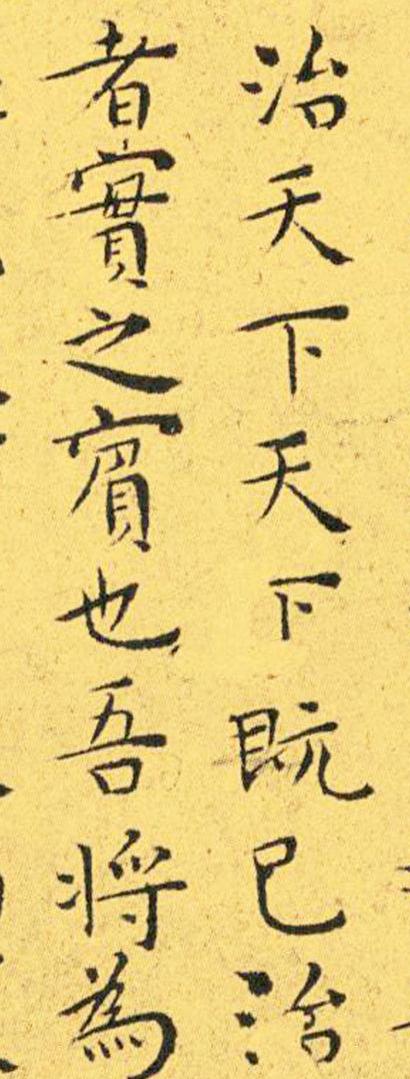 治天下天下既已治
者實之賓也吾將為